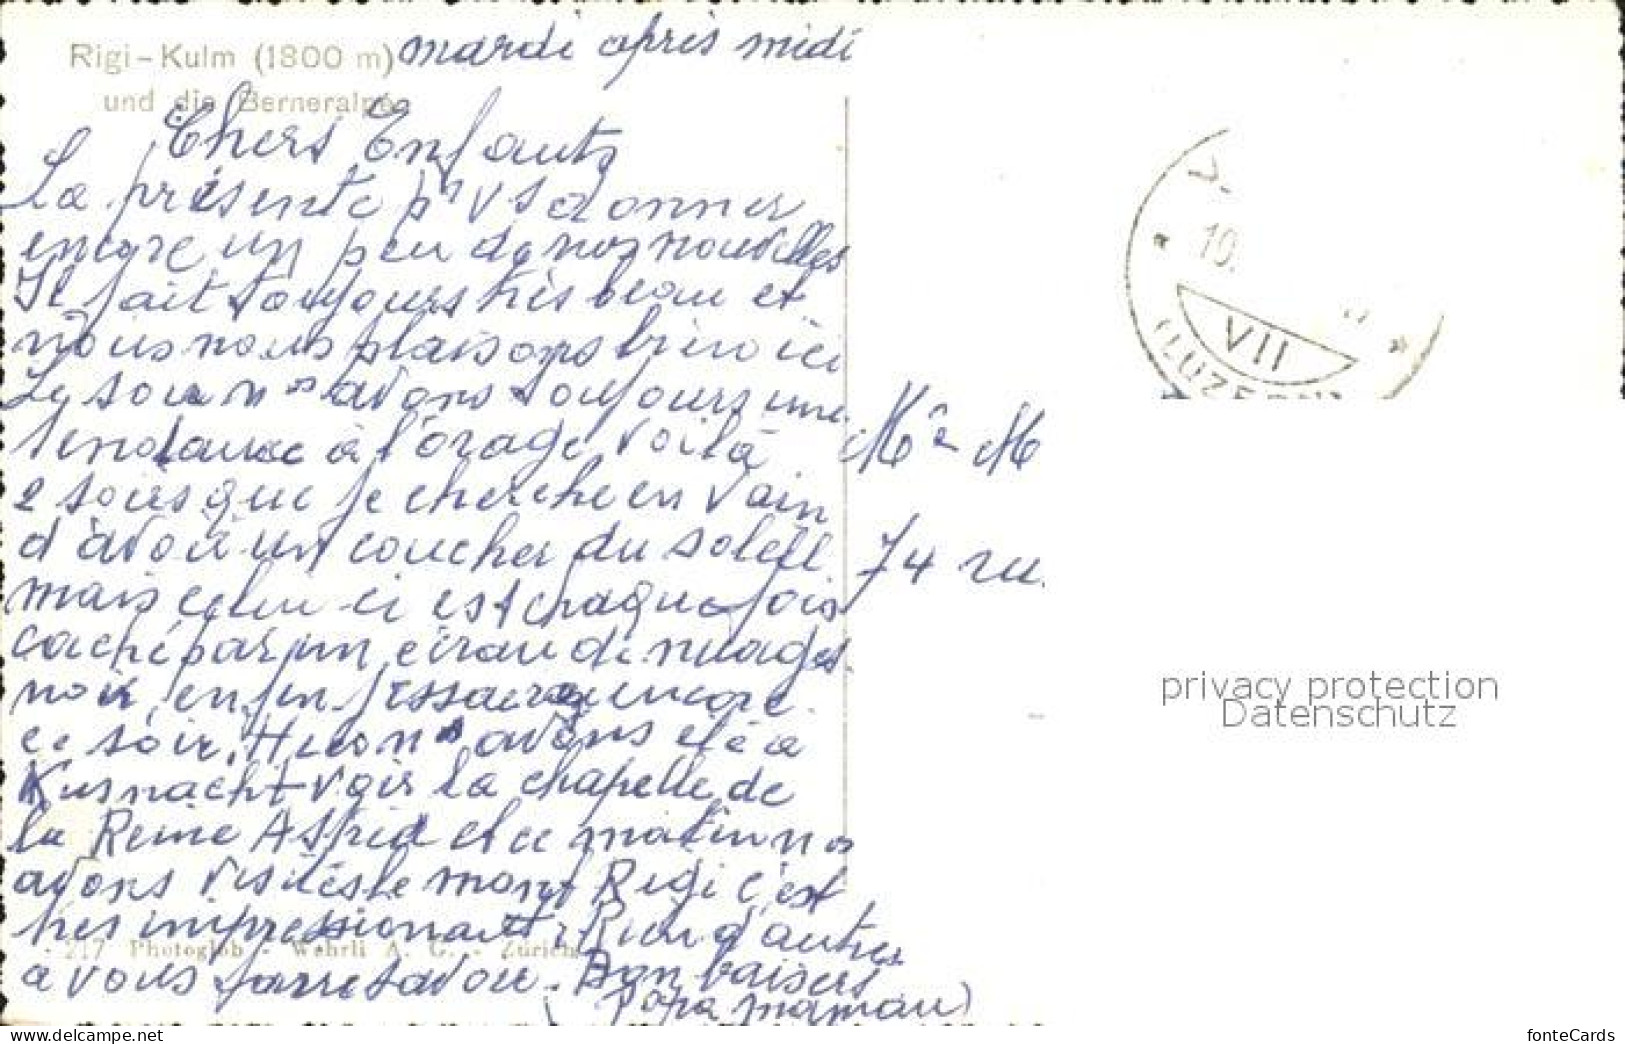 Rigi-Kulm (1800 m)
und die Berneralpen
mardi après midi
Chers Enfants
La présente pr vs donner
encore un peu de nos nouvelles
Il fait toujours très beau et
nous nous plaisons bien ici
Le soir ns avons toujours une
tendance à l'orage, voilà
2 soirs que je cherche en vain
d'avoir un coucher du soleil
mais celui-ci est chaque fois
caché par un écran de nuages
noir, enfin j'essaierai encore
ce soir. Hier ns avons été à
Kusnacht voir la chapelle de
la Reine Astrid et ce matin ns
avons visités le mont Rigi c'est
très impressionant. Rien d'autres
217 Photoglob - Wehrli A. G. - Zürich
a vous faire savoir. Bon baisers
(Papa maman)
Me M
74 ru
10.
VII
(LUZERN)
privacy protection
Datenschutz
the-net.com
fonteCards